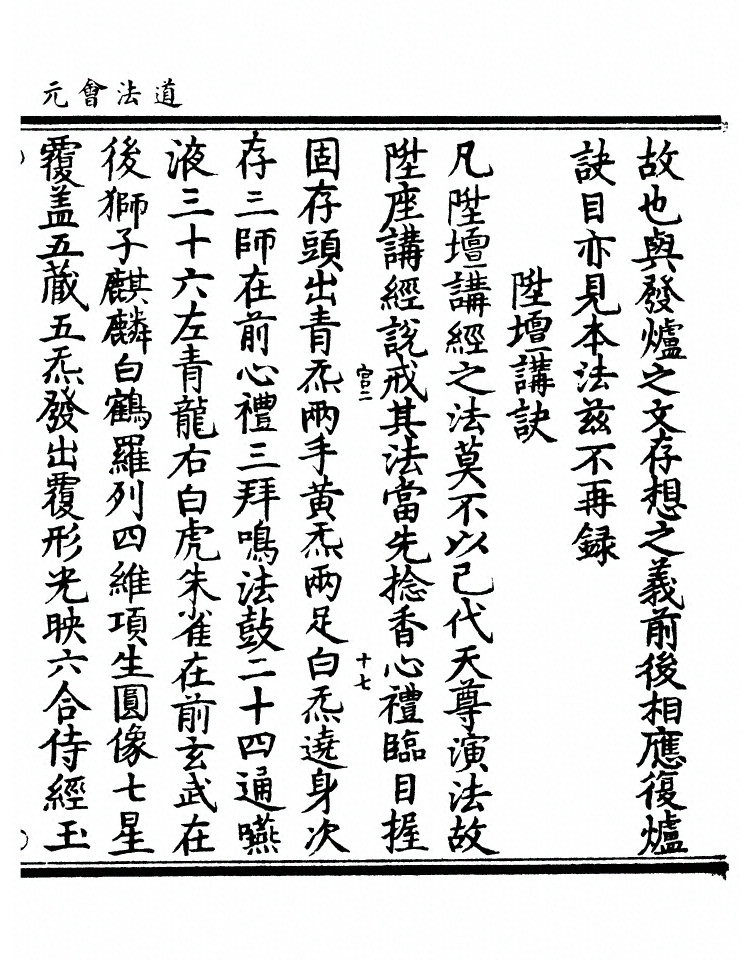 道法會元
故也與發爐之文存想之義前後相應復爐
訣目亦見本法茲不再録
陞壇講訣
凡陞壇講經之法莫不以己代天尊演法故
陞座講經說戒其法當先捻香心禮臨目握
宫二
十七
固存頭出青炁兩手黄炁兩足白炁遶身次
存三師在前心禮三拜鳴法鼓二十四通嚥
液三十六左青龍右白虎朱雀在前玄武在
後獅子麒麟白鶴羅列四維項生圓像七星
覆盖五藏五炁發出覆形光映六合侍經玉